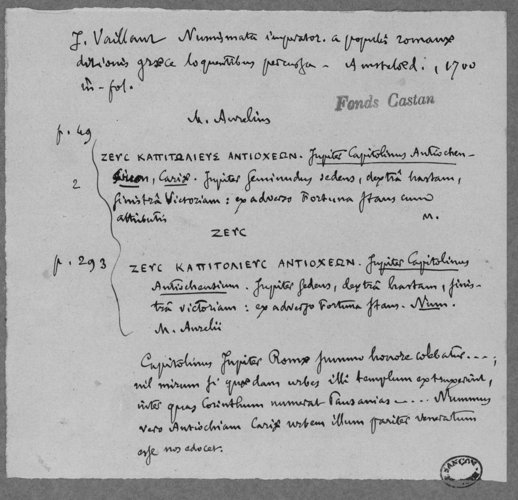 J. Vaillant Numismata imperator. a populis romanæ
ditionis græce loquentibus percussa - Amstelod., 1700
in-fol.
Fonds Castan
M. Aurelius
p. 49
ΖΕΥC ΚΑΠΙΤΩΛΙΕΥC ΑΝΤΙΟΧΕΩΝ. Jupiter Capitolinus Antiochen-
sium, Cariæ. Jupiter seminudus sedens, dextrâ hastam,
2
sinistrâ Victoriam : ex adverso Fortuna stans cum
attributis M.
ΖΕΥC
p. 293
ΖΕΥC ΚΑΠΙΤΟΛΙΕΥC ΑΝΤΙΟΧΕΩΝ. Jupiter Capitolinus
Antiochensium. Jupiter sedens, dextrâ hastam, sinis-
trâ victoriam : ex adverso Fortuna stans. Num.
M. Aurelii
Capitolinus Jupiter Romæ summo honore colebatur...;
nil mirum si quædam urbes illi templum extruxerint,
inter quas Corinthum numerat Pausanias -... Nummus
vero Antiochiam Cariæ urbem illum pariter veneratum
esse nos edocet.